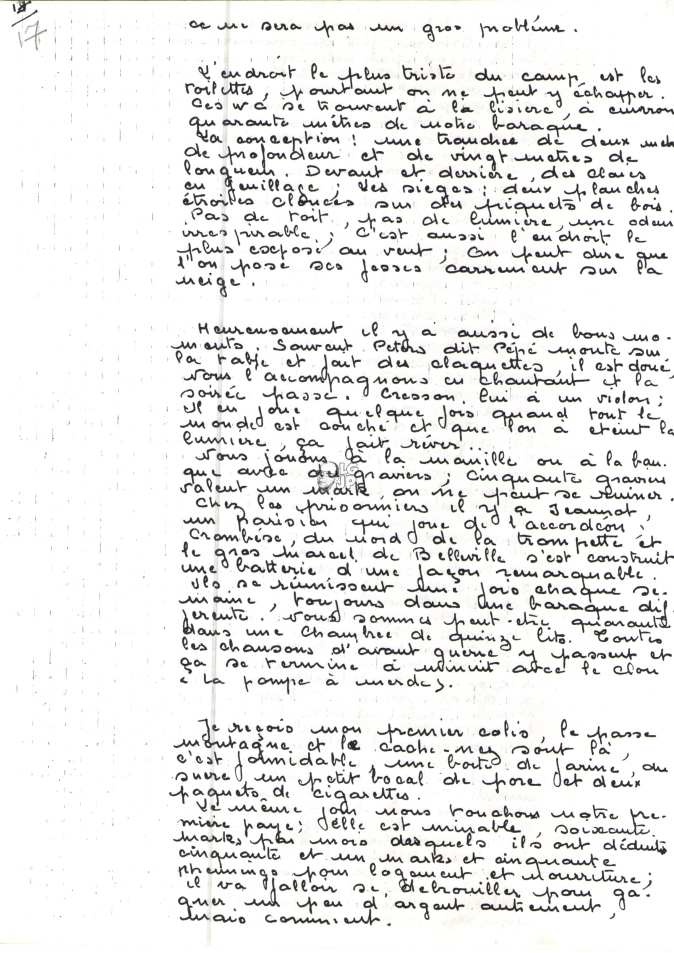 17
17
ce ne sera pas un gros problème.
L'endroit le plus triste du camp est les
toilettes, pourtant on ne peut y échapper.
Ces W à se trouvent à la lisière, à environ
quarante mètres de notre baraque.
La conception : une tranchée de deux met
de profondeur et de vingt mètres de
longueur. Devant et derrière, des claies
en feuillage ; Les sièges : deux planches
étroites clouées sur des piquets de bois.
Pas de toit, pas de lumière, une odeur
irrespirable ; C'est aussi l'endroit le
plus exposé au vent ; On peut dire que
l'on pose ses fesses carrement sur la
neige.
Heureusement il y à aussi de bons mo-
ments. Souvent Peters dit Pépé monte sur
la table et fait des claquettes, il est doué,
nous l'accompagnons en chantant et la
soirée passe. Cresson, lui à un violon ;
il en joue quelque fois quand tout le
monde est couché et que l'on à éteint la
lumière, ça fait rêver...
Nous jouons à la manille ou à la ban.
que avec des graviers ; Cinquante graviers
valent un mark, on ne peut se ruiner.
Chez les prisonniers il y a Jeannot,
un parisien qui joue de l'accordéon ;
Crombèse, du nord de la trompette et
le gros Marcel de Belleville s'est construit
une batterie d'une façon remarquable.
Ils se réunissent une fois chaque se-
maine, toujours dans une baraque dif
férente. Nous sommes peut-être quarante
dans une chambrée de quinze lits. Toutes
les chansons d'avant guerre y passent et
ça se termine à minuit avec le clou
« la pompe à merde ».
Je reçois mon premier colis, le passe
montagne et le cache-nez sont là,
c'est formidable, une boite de farine, du
sucre, un petit bocal de porc et deux
paquets de cigarettes.
Le même jour nous touchons notre pre-
mière paye ; elle est minable, soixante
marks par mois desquels ils ont déduits
cinquante et un marks et cinquante
phennings pour logement et nourriture ;
il va falloir se debrouiller pour ga-
gner un peu d'argent autrement,
mais comment.